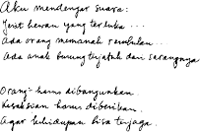 Aku mendengar suara:
Jerit hewan yang terluka ...
Ada orang memanah rembulan...
Ada anak burung terjatuh dari sarangnya
Orang-harus dibangunkan
Kesaksian harus diberikan.
Agar kehidupan bisa terjaga.